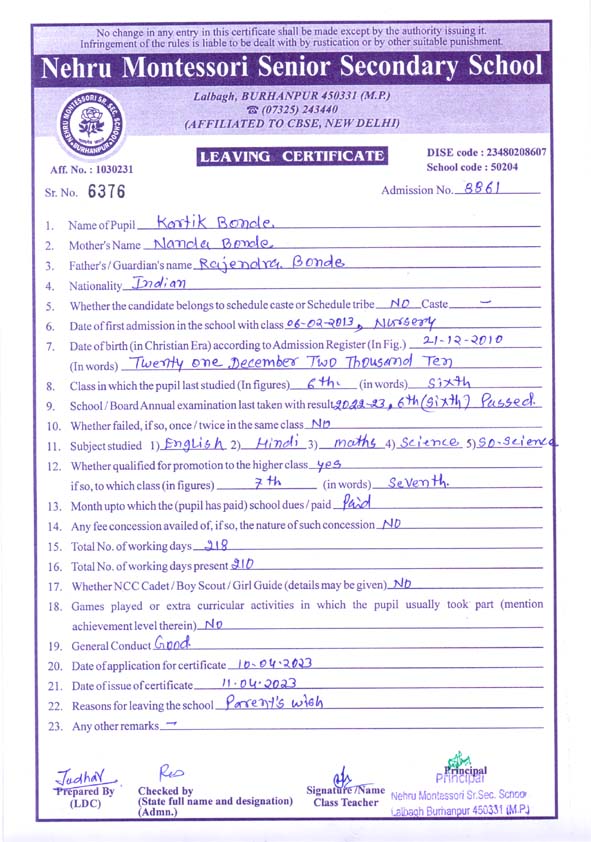 No change in any entry in this certificate shall be made except by the authority issuing it.
Infringement of the rules is liable to be dealt with by rustication or by other suitable punishment.
Nehru Montessori Senior Secondary School
Lalbagh, BURHANPUR 450331 (M.P.)
☎ (07325) 243440
(AFFILIATED TO CBSE, NEW DELHI)
NEHRU MONTESSORI SR. SEC. SCHOOL
BURHANPUR
LEAVING CERTIFICATE
DISE code : 23480208607
School code : 50204
Aff. No. : 1030231
Sr. No. 6376
Admission No. 8861
1. Name of Pupil Kartik Bonde.
2. Mother's Name Nanda Bonde
3. Father's / Guardian's name Rajendra Bonde
4. Nationality Indian
5. Whether the candidate belongs to schedule caste or Schedule tribe NO Caste –
6. Date of first admission in the school with class 06-02-2013, Nursery
7. Date of birth (in Christian Era) according to Admission Register (In Fig.) 21-12-2010
(In words) Twenty one December Two Thousand Ten
8. Class in which the pupil last studied (In figures) 6th. (in words) Sixth
9. School / Board Annual examination last taken with result 2022-23, 6th (Sixth) Passed.
10. Whether failed, if so, once / twice in the same class NO
11. Subject studied 1) English 2) Hindi 3) maths 4) Science 5) SO-Science
12. Whether qualified for promotion to the higher class yes
if so, to which class (in figures) 7th (in words) Seventh.
13. Month upto which the (pupil has paid) school dues / paid Paid
14. Any fee concession availed of, if so, the nature of such concession NO
15. Total No. of working days 218
16. Total No. of working days present 210
17. Whether NCC Cadet / Boy Scout / Girl Guide (details may be given) NO
18. Games played or extra curricular activities in which the pupil usually took part (mention
achievement level therein) NO
19. General Conduct Good
20. Date of application for certificate 10-04-2023
21. Date of issue of certificate 11-04-2023
22. Reasons for leaving the school Parent's wish
23. Any other remarks –
Jadhav
Prepared By
(LDC)
Checked by
(State full name and designation)
(Admn.)
Signature / Name
Class Teacher
Principal
Principal
Nehru Montessori Sr.Sec. School
Lalbagh Burhanpur 450331 (M.P.)